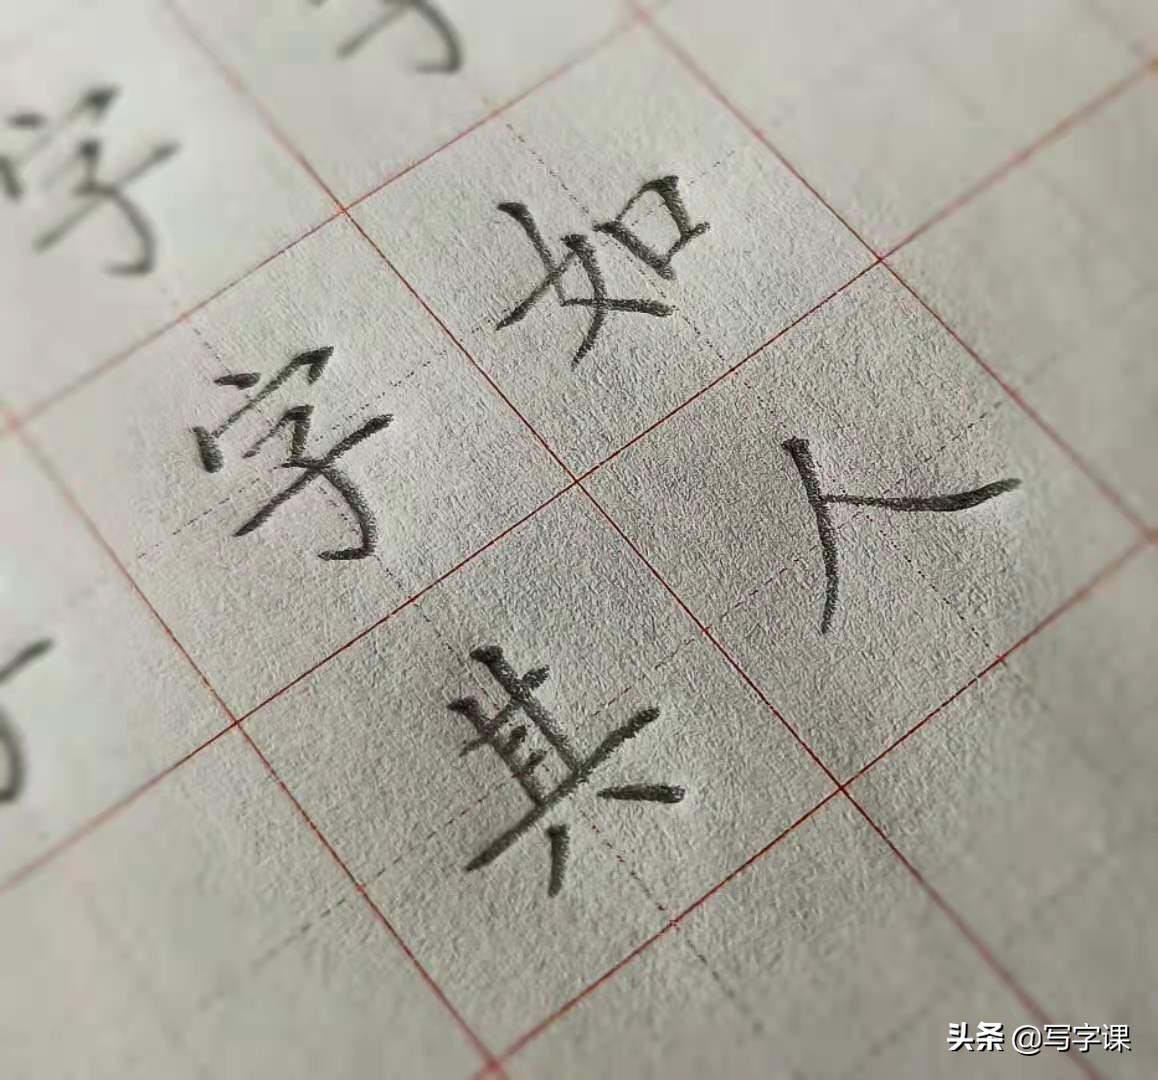 字如
其人
头条 @写字课